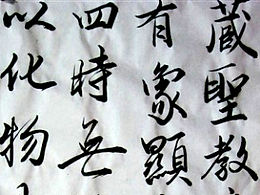 蔵聖教
有象顯
四時無
以化物